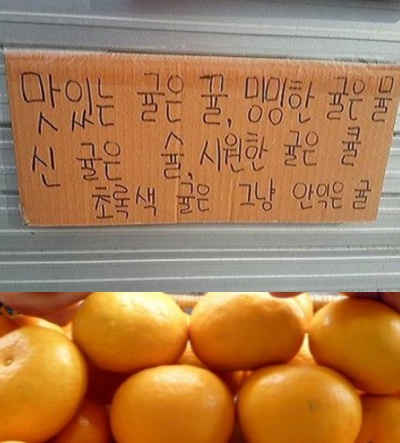 맛있는 귤은 꿀, 밍밍한 귤은 물
신 귤은 술, 시원한 귤은 쿨
초록색 귤은 그냥 안익은 귤